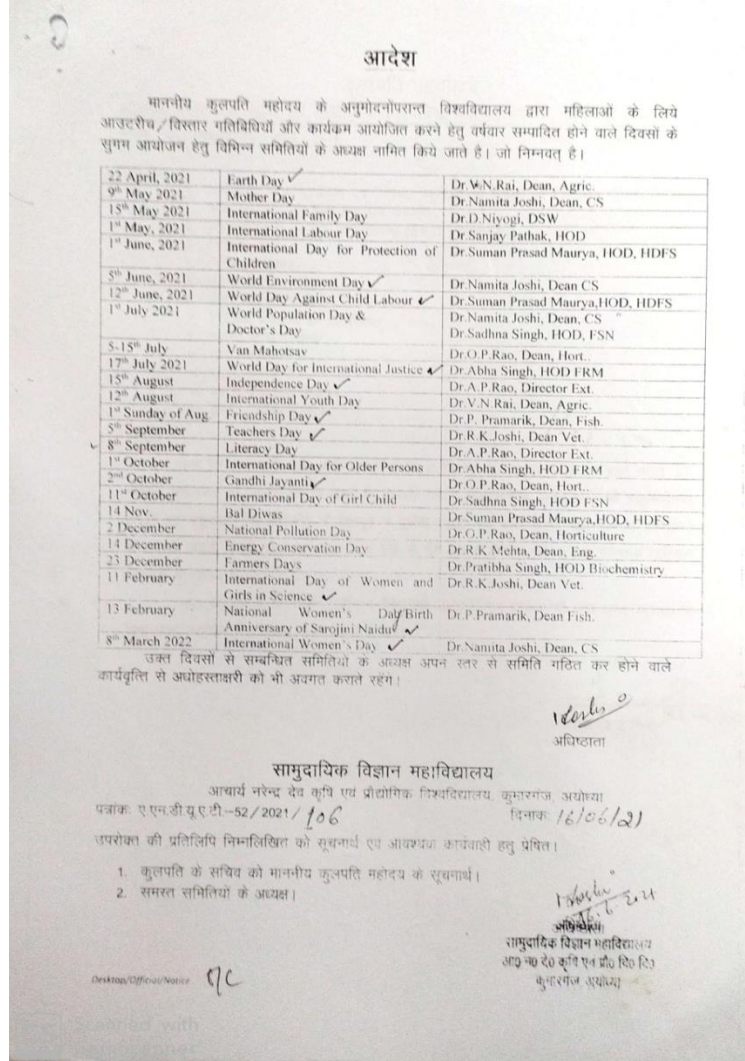 आदेश
माननीय कुलपति महोदय के अनुमोदनोपरान्त विश्वविद्यालय द्वारा महिलाओं के लिये
आउटरीच/विस्तार गतिबिधियों और कार्यकम आयोजित करने हेतु वर्षवार सम्पादित होने वाले दिवसों के
सुगम आयोजन हेतु विभिन्न समितियों के अध्यक्ष नामित किये जाते है। जो निम्नवत् है।
22 April, 2021 Earth Day ✓ Dr.V.N.Rai, Dean, Agric.
9th May 2021 Mother Day Dr.Namita Joshi, Dean, CS
15th May 2021 International Family Day Dr.D.Niyogi, DSW
1st May, 2021 International Labour Day Dr.Sanjay Pathak, HOD
1st June, 2021 International Day for Protection of Dr.Suman Prasad Maurya, HOD, HDFS
Children
5th June, 2021 World Environment Day ✓ Dr.Namita Joshi, Dean CS
12th June, 2021 World Day Against Child Labour ✓ Dr.Suman Prasad Maurya,HOD, HDFS
1st July 2021 World Population Day & Dr.Namita Joshi, Dean, CS "
Doctor's Day Dr.Sadhna Singh, HOD, FSN
5-15th July Van Mahotsav Dr.O.P.Rao, Dean, Hort..
17th July 2021 World Day for International Justice ✓ Dr.Abha Singh, HOD FRM
15th August Independence Day ✓ Dr.A.P.Rao, Director Ext.
12th August International Youth Day Dr.V.N.Rai, Dean, Agric.
1st Sunday of Aug. Friendship Day ✓ Dr.P. Pramarik, Dean, Fish.
5th September Teachers Day ✓ Dr.R.K.Joshi, Dean Vet.
✓ 8th September Literacy Day Dr.A.P.Rao, Director Ext.
1st October International Day for Older Persons Dr.Abha Singh, HOD FRM
2nd October Gandhi Jayanti ✓ Dr.O.P.Rao, Dean, Hort..
11st October International Day of Girl Child Dr.Sadhna Singh, HOD FSN
14 Nov. Bal Diwas Dr.Suman Prasad Maurya,HOD, HDFS
2 December National Pollution Day Dr.O.P.Rao, Dean, Horticulture
14 December Energy Conservation Day Dr.R.K Mehta, Dean, Eng.
23 December Farmers Days Dr.Pratibha Singh, HOD Biochemistry
11 February International Day of Women and Dr.R.K.Joshi, Dean Vet.
Girls in Science ✓
13 February National Women's Day/Birth Dr.P.Pramarik, Dean Fish.
Anniversary of Sarojini Naidu ✓
8th March 2022 International Women's Day ✓ Dr.Namita Joshi, Dean, CS
उक्त दिवसों से सम्बन्धित समितियों के अध्यक्ष अपन स्तर से समिति गठित कर होने वाले
कार्यवृत्ति से अधोहस्ताक्षरी को भी अवगत कराते रहेंग।
अधिष्ठाता
सामुदायिक विज्ञान महाविद्यालय
आचार्य नरेन्द्र देव कृषि एवं प्रौद्योगिक विश्वविद्यालय, कुमारगंज, अयोध्या
पत्रांक: ए.एन.डी.यू.ए.टी.-52/2021/106 दिनाक: 16/06/21
उपरोक्त की प्रतिलिपि निम्नलिखित को सूचनार्थ एवं आवश्यक कार्यवाही हेतु प्रेषित।
1. कुलपति के सचिव को माननीय कुलपति महोदय के सूचनार्थ।
2. समस्त समितियों के अध्यक्ष।
सामुदायिक विज्ञान महाविद्यालय
आ0 न0 दे0 कृषि एवं प्रौ0 वि0 वि0
कुमारगंज अयोध्या
Desktop/Official/Notice
Scanned with